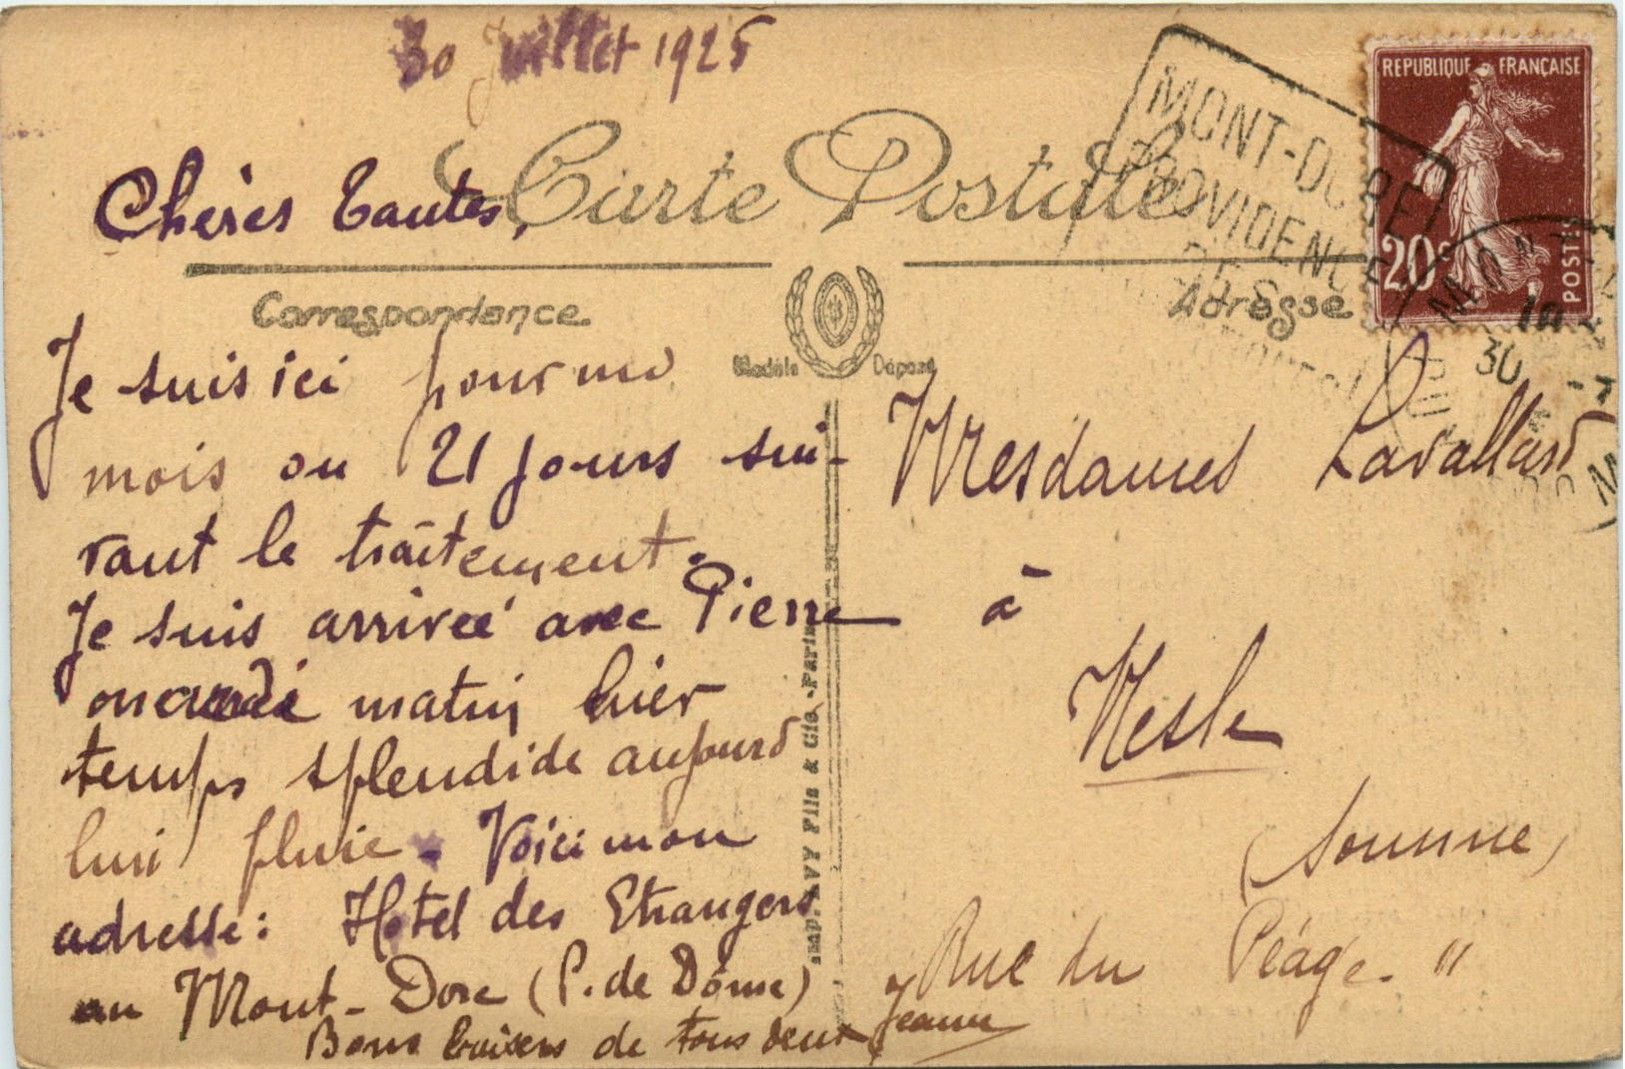 30 Juillet 1925
Chères Tantes,
Carte Postale
Correspondance
Adresse
Modèle Déposé
REPUBLIQUE FRANÇAISE
20c
POSTES
MONT-DORE
PROVIDENCE
DES
30 -7
Je suis ici pour un
mois ou 21 jours sui-
vant le traitement.
Je suis arrivée avec Pierre
mercredi matin hier
temps splendide aujourd
hui pluie. Voici mon
adresse: Hotel des Etrangers
au Mont-Dore (P. de Dôme)
Bons baisers de tous deux Jeanne
Mesdames Lavallard
à
Nesle
(Somme)
Rue du Péage. "
Imp. LEVY Fils & Cie -Paris